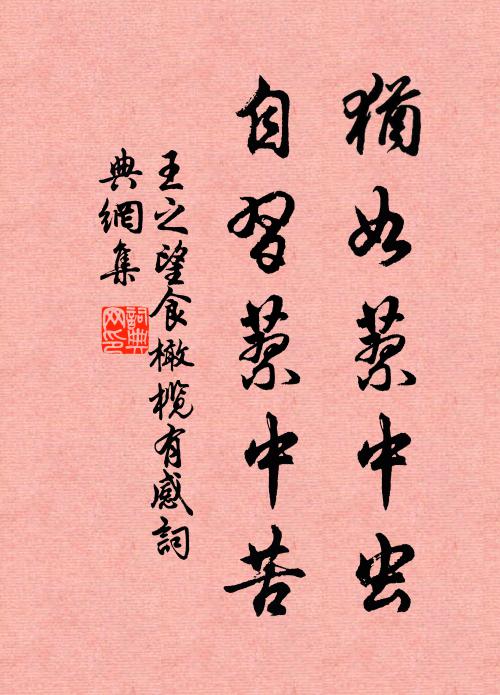 猶如蓼中虫
自習蓼中苦
王之望食橄榄有感詞
典網集
詞典
网印